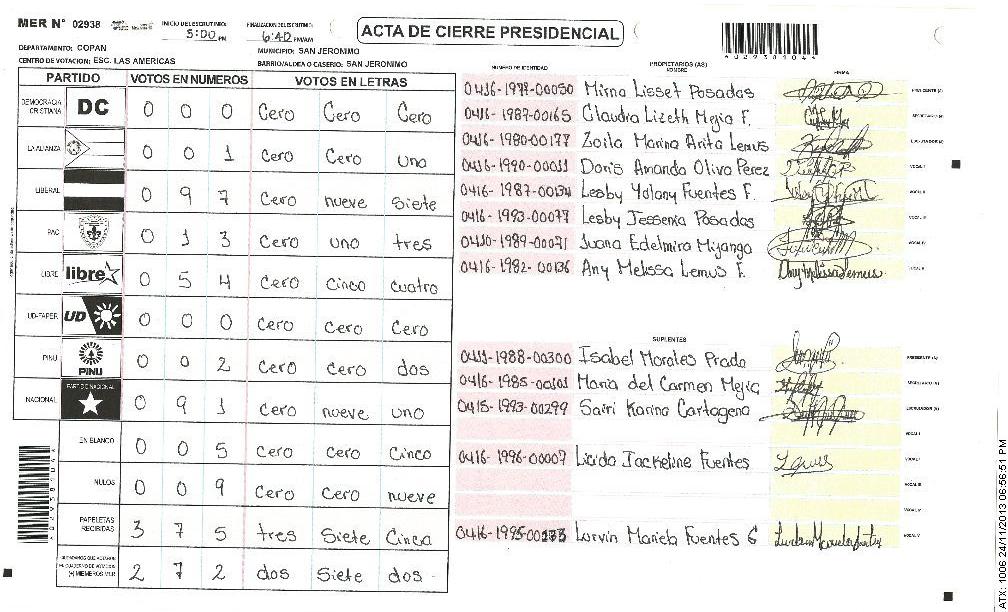 MER N° 02938
INICIO DEL ESCRUTINIO: 5:00 PM
FINALIZACION DEL ESCRUTINIO: 6:40 PM/AM
ACTA DE CIERRE PRESIDENCIAL
DEPARTAMENTO: COPAN
MUNICIPIO: SAN JERONIMO
CENTRO DE VOTACION: ESC. LAS AMERICAS
BARRIO/ALDEA O CASERIO: SAN JERONIMO
PARTIDO VOTOS EN NUMEROS VOTOS EN LETRAS
DEMOCRACIA CRISTIANA DC 0 0 0 Cero Cero Cero
LA ALIANZA 0 0 1 Cero Cero uno
LIBERAL 0 9 7 Cero nueve Siete
PAC 0 1 3 Cero uno tres
LIBRE libre 0 5 4 Cero cinco cuatro
UD-FAPER UD 0 0 0 Cero Cero Cero
PINU PINU 0 0 2 Cero cero dos
NACIONAL PARTIDO NACIONAL 0 9 1 Cero nueve uno
EN BLANCO 0 0 5 Cero Cero Cinco
NULOS 0 0 9 Cero Cero nueve
PAPELETAS RECIBIDAS 3 7 5 tres Siete Cinco
CIUDADANOS QUE VOTARON EN CUADERNO DE VOTACION (+) MIEMBROS MER 2 7 2 dos Siete dos -
NUMERO DE IDENTIDAD PROPIETARIOS (AS) NOMBRE FIRMA
Mirna Lisset Posadas PRESIDENTE (A)
0416-1987-00165 Claudia Lizeth Mejia F. SECRETARIO (A)
0416-1980-00177 Zoila Marina Arita Lemus ESCRUTADOR (A)
0416-1990-00011 Doris Amanda Oliva Perez VOCAL I
0416-1987-00134 Lesby Yolany Fuentes F. VOCAL II
0416-1993-00077 Lesby Jessenia Posadas VOCAL III
Juana Edelmira Mijango VOCAL IV
0416-1982-00136 Any Melissa Lemus F. Any Melissa Lemus VOCAL V
SUPLENTES
Isabel Morales Prado PRESIDENTE (A)
0416-1985-00101 Maria del Carmen Mejia SECRETARIO (A)
0415-1993-00299 Sairi Karina Cartagena ESCRUTADOR (A)
VOCAL I
0416-1996-00007 Jackeline Fuentes VOCAL II
VOCAL III
VOCAL IV
Mariela Fuentes G VOCAL V
ATX: 1006 24/11/2013 06:56:51 PM